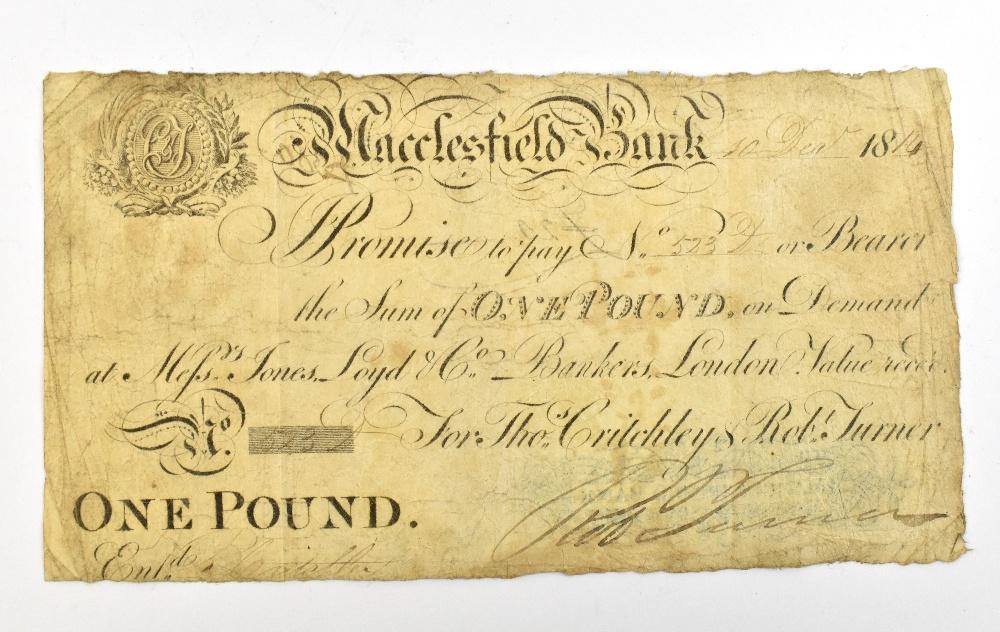 Macclesfield Bank 10 Decr 1814
I Promise to pay No. 523 or Bearer
the Sum of ONE POUND. on Demand
at Messrs. Jones, Loyd & Co. Bankers, London Value reced.
No. 523 For Thos. Critchley & Robt. Turner
Rob Turner
ONE POUND.
Entd.